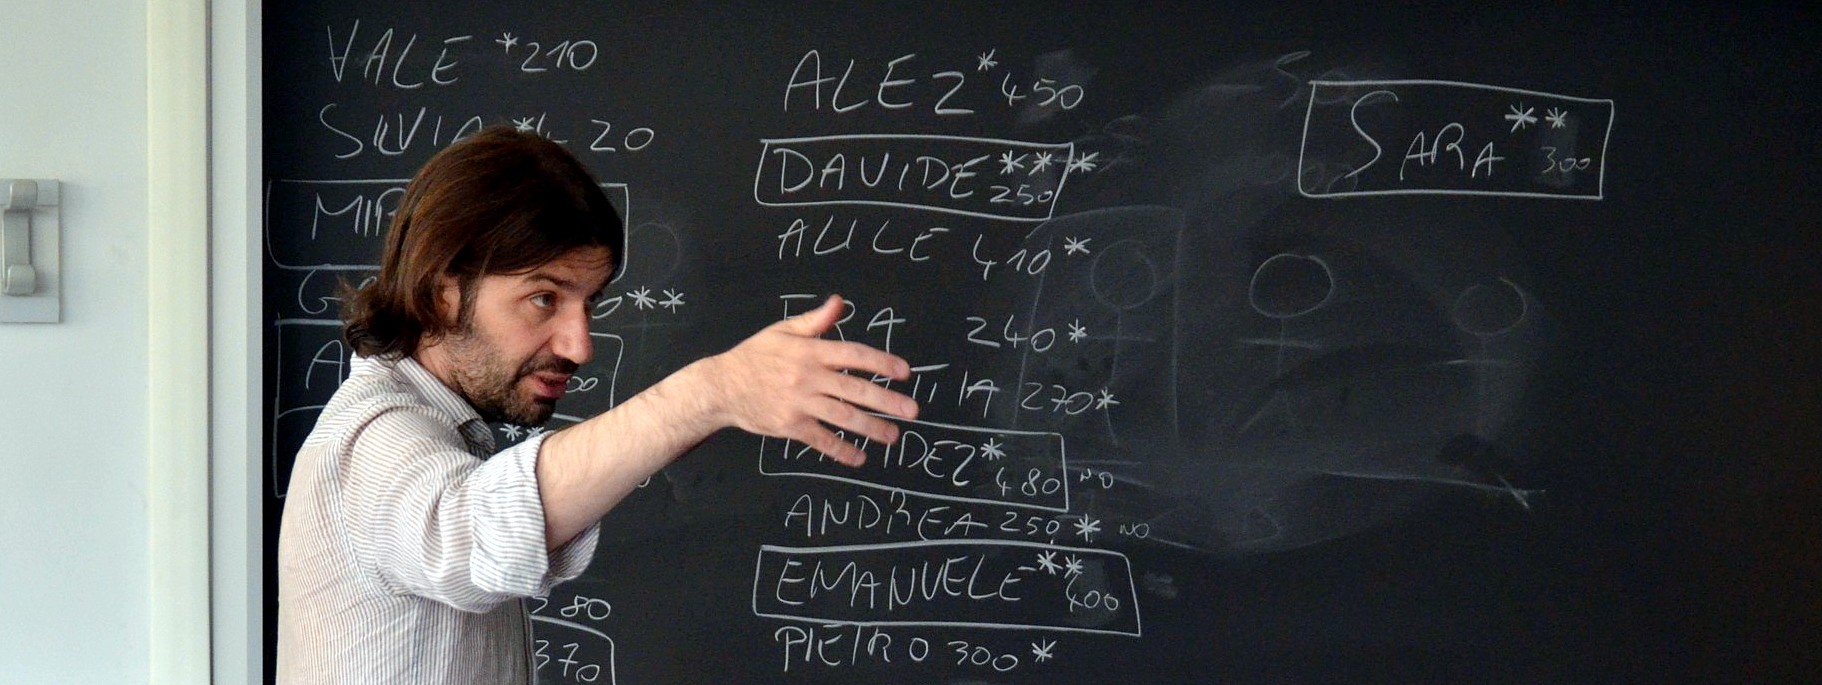 VALE *210
SILVIA * 20
**
**
280
370
ALE2* 450
DAVIDE*** 250
ALILE 410*
FRA 240*
270*
DAVIDE2* 480 NO
ANDREA 250 * NO
EMANUELE-** 400
PIETRO 300 *
SARA** 300